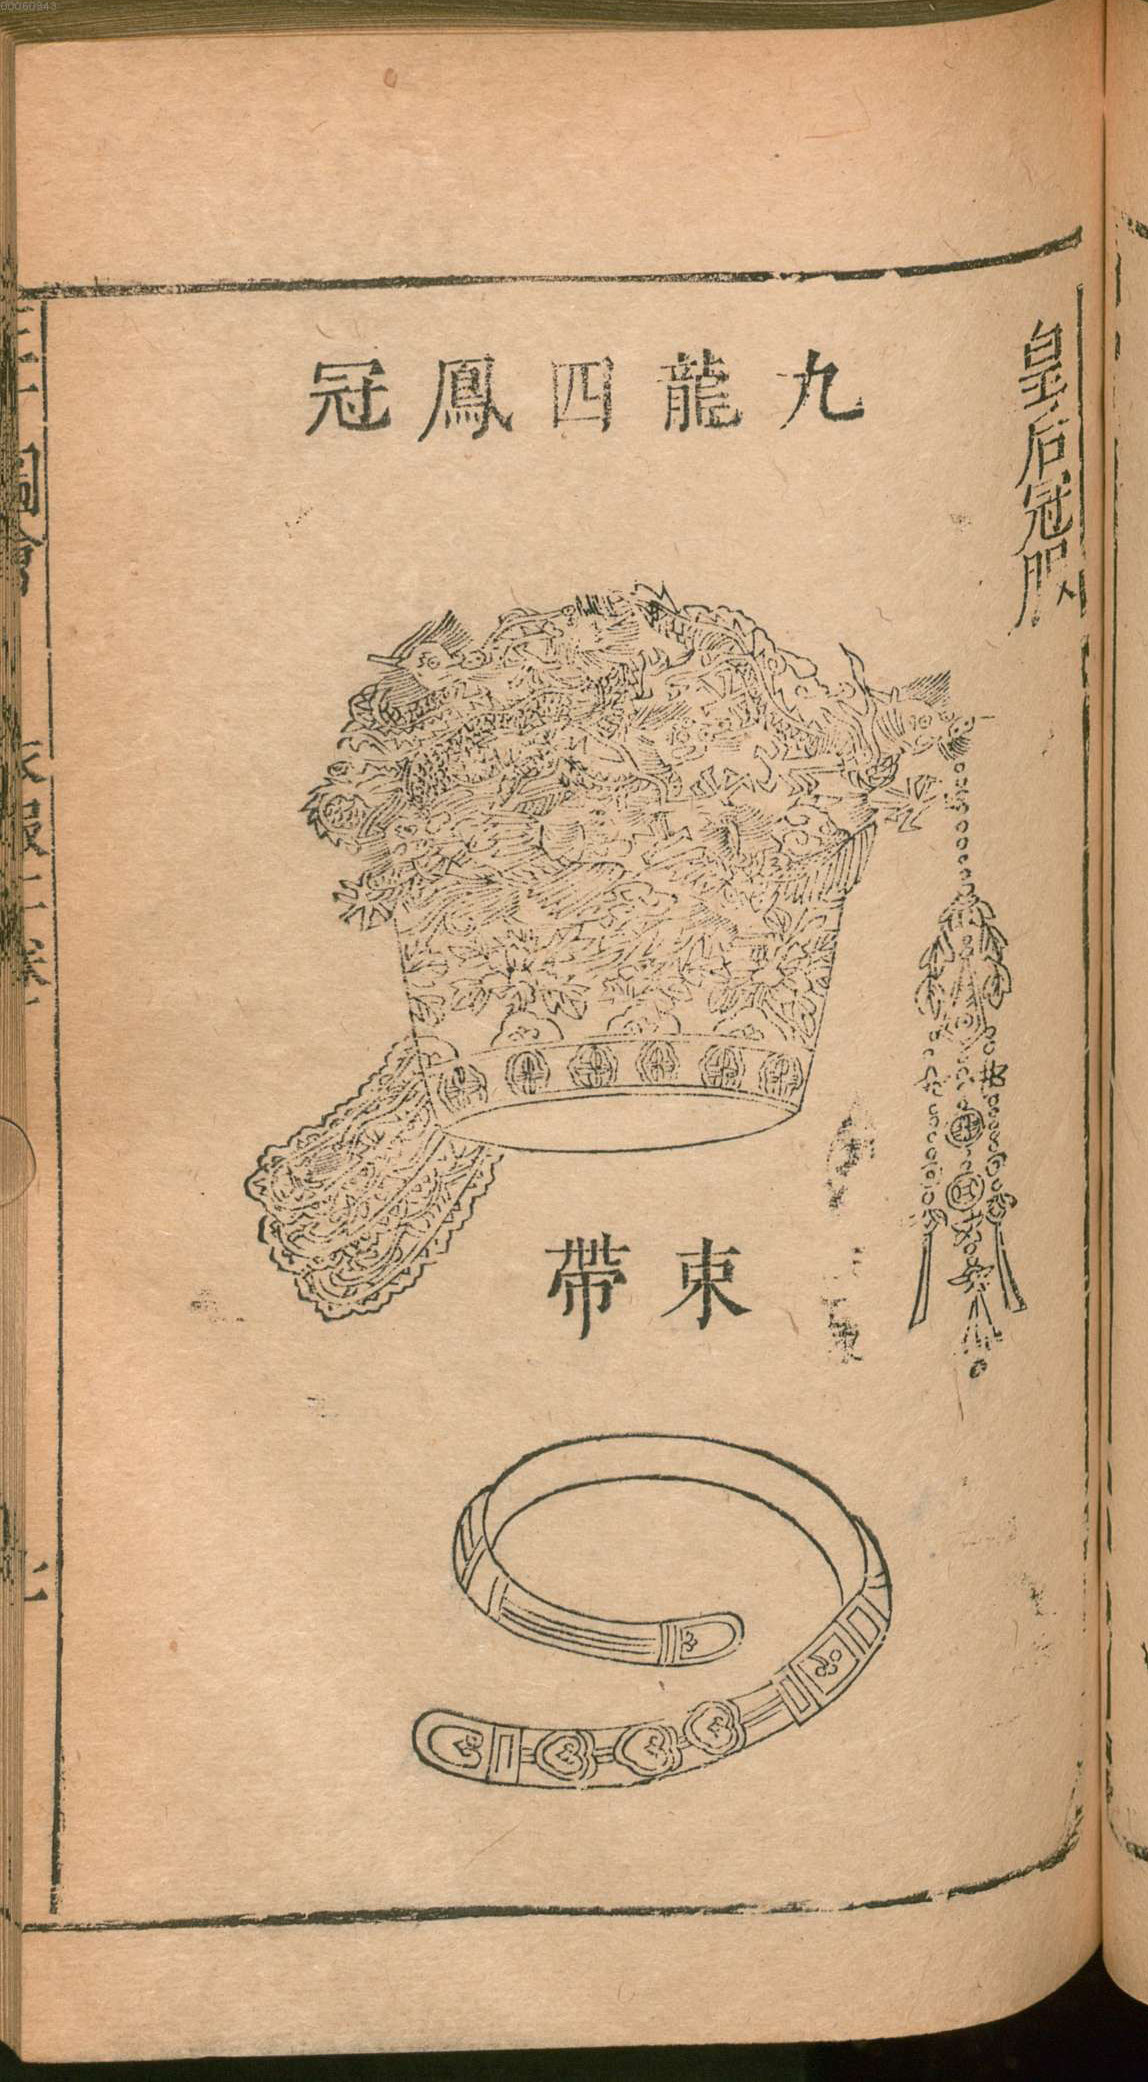 皇后冠服
九龍四鳳冠
束帶
圖會
衣服二卷
00060343